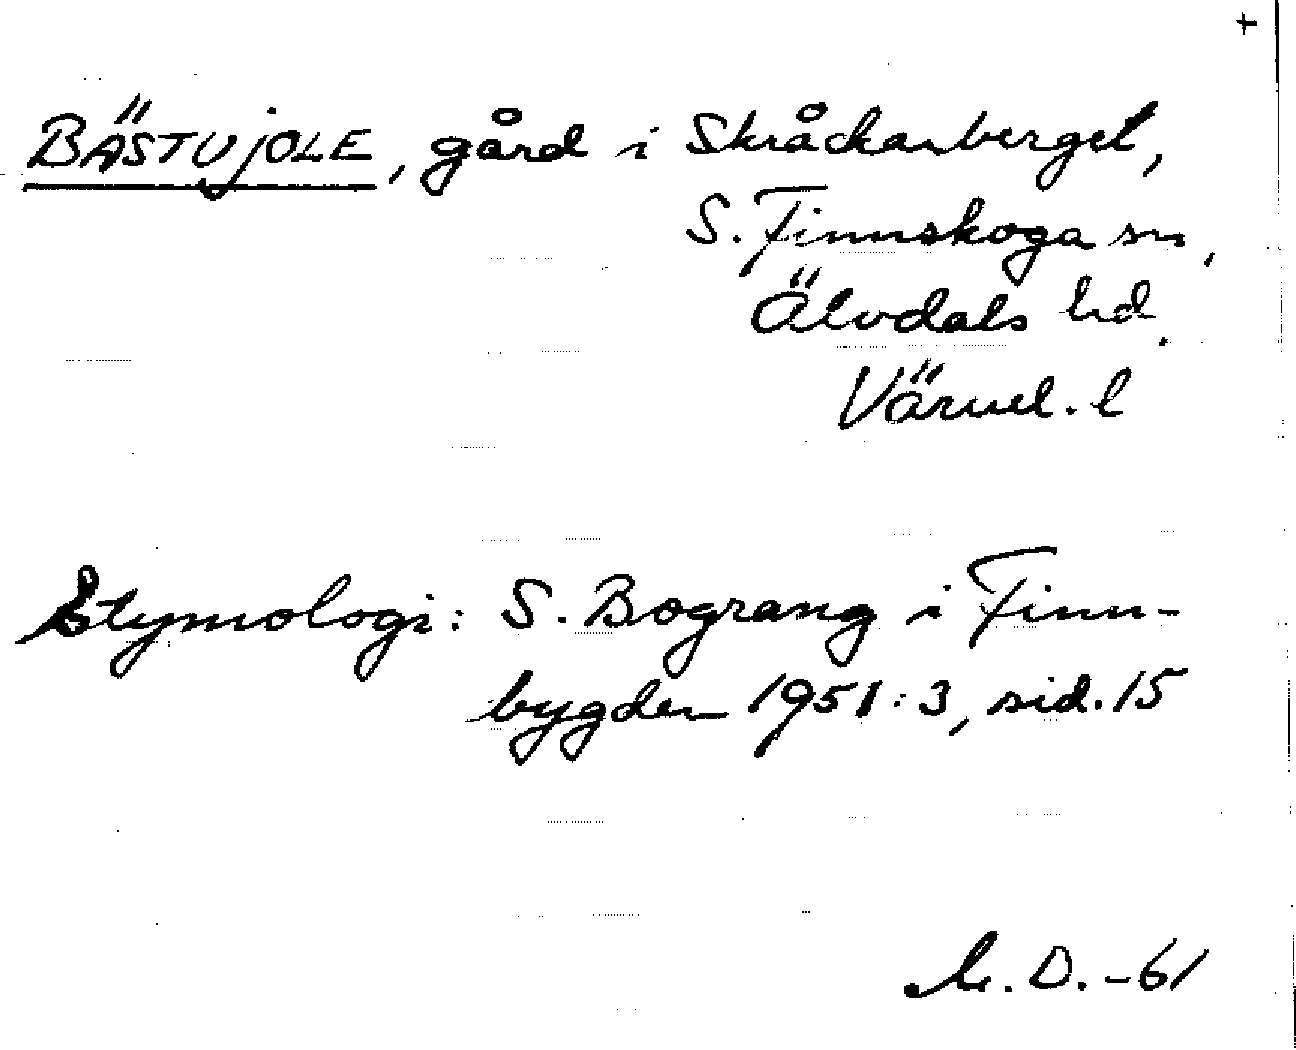 +
BÄSTUJOLE, gård i Skråckarberget,
S. Finnskoga sn,
Älvdals hd.
Värml. l
Etymologi: S. Bograng i Finn-
bygden 1951:3, sid. 15
M. D. -61